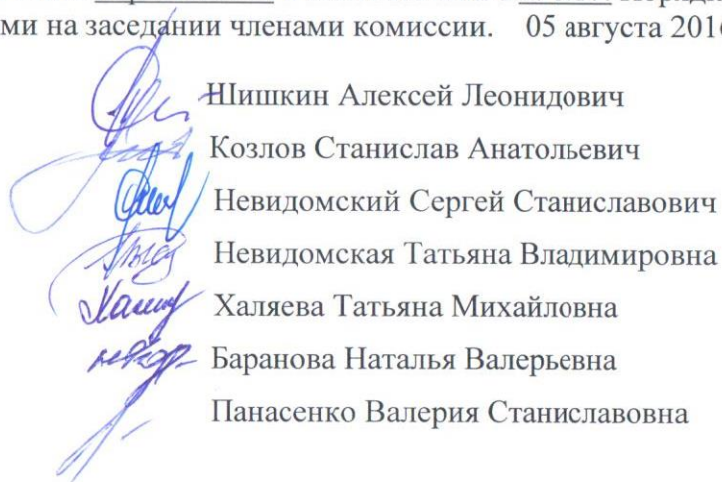 ми на заседании членами комиссии. 05 августа 2016
Шишкин Алексей Леонидович
Козлов Станислав Анатольевич
Невидомский Сергей Станиславович
Невидомская Татьяна Владимировна
Халяева Татьяна Михайловна
Баранова Наталья Валерьевна
Панасенко Валерия Станиславовна